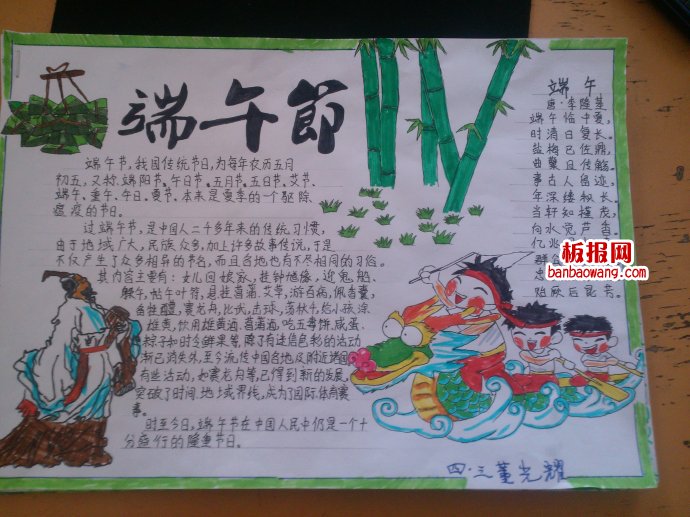 端午節
端午节,我国传统节日,为每年农历五月
初五,又称端阳节。午日节。五月节。五日节。艾节、
端午、重午、午日。夏节。本来是夏季的一个驱除
瘟疫的节日。
过端午节,是中国人二千多年来的传统习惯,
由于地域广大,民族众多,加上许多故事传说,于是
不仅产生了众多相异的节名,而且各地也有不尽相同的习俗。
其内容主要有:女儿回娘家,挂钟馗像,迎鬼船、
躲午,帖午叶符,悬挂菖蒲、艾草,游百病,佩香囊,
备牲醴,赛龙舟,比武,击球,荡秋千,给小孩涂
雄黄,饮用雄黄酒、菖蒲酒,吃五毒饼、咸蛋、
粽子和时令鲜果等,除了有迷信色彩的活动
渐已消失外,至今流传中国各地及附近诸国。
有些活动,如赛龙舟等,已得到新的发展,
突破了时间、地域界线,成为了国际体育赛
事。
时至今日,端午节在中国人民中仍是一个十
分盛行的隆重节日。
端午
唐·李隆基
端午临中夏,
时清日复长。
盐梅已佐鼎,
曲糵且传觞。
事古人留迹,
年深缕积长。
当轩知槿茂,
向水觉芦香。
亿兆
群公
忠
贻厥后昆芳。
板报网
banbaowang.com
四·三董光耀